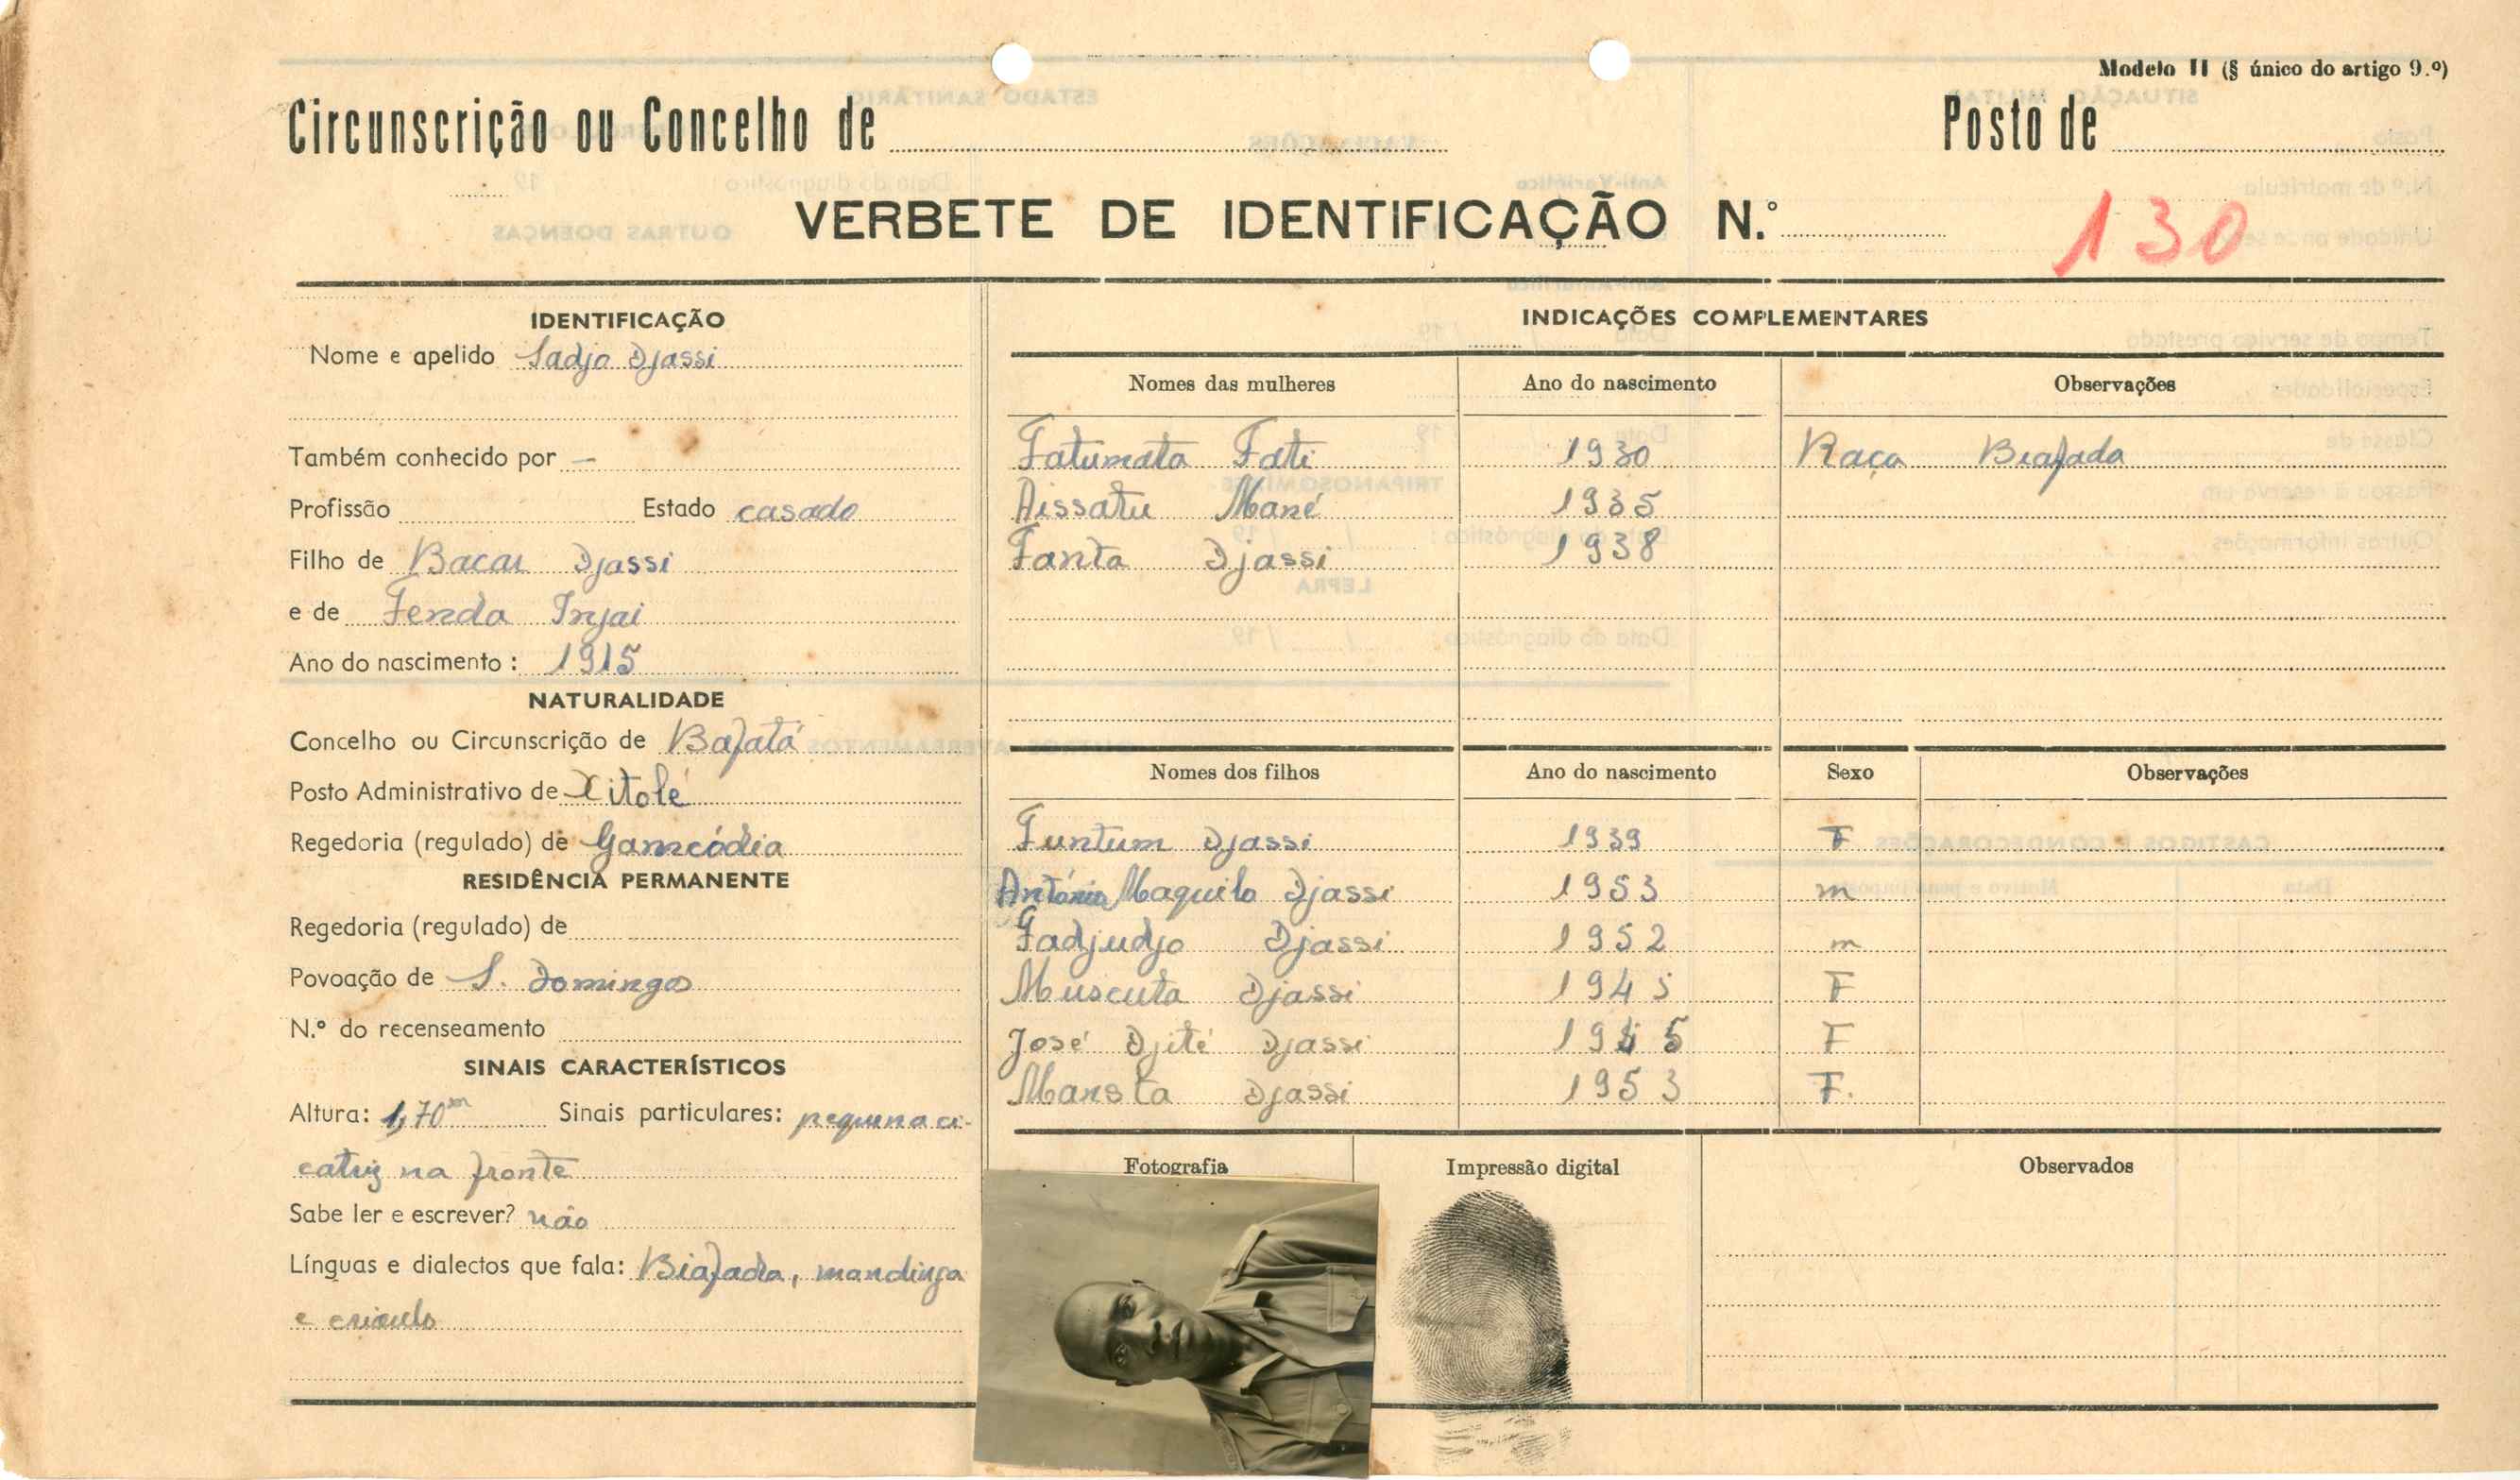 Modelo II (§ único do artigo 9.º)
Circunscrição ou Concelho de
Posto de
VERBETE DE IDENTIFICAÇÃO N.º
130
IDENTIFICAÇÃO
Nome e apelido Sadjo Djassi
Também conhecido por —
Profissão Estado casado
Filho de Bacar Djassi
e de Fenda Injai
Ano do nascimento : 1915
NATURALIDADE
Concelho ou Circunscrição de Bafatá
Posto Administrativo de Xitole
Regedoria (regulado) de
RESIDÊNCIA PERMANENTE
Regedoria (regulado) de
Povoação de S. Domingos
N.º do recenseamento
SINAIS CARACTERÍSTICOS
Altura: 1,70m Sinais particulares: pequena ci-
catriz na fronte
Sabe ler e escrever? não
Línguas e dialectos que fala: Biafada, mandinga
e crioulo
INDICAÇÕES COMPLEMENTARES
Nomes das mulheres Ano do nascimento Observações
Fatumata Fati 1930 Raça Biafada
Aissatu Mané 1935
Fanta Djassi 1938
Nomes dos filhos Ano do nascimento Sexo Observações
Funtum Djassi 1939 F
António Maquilo Djassi 1953 m
Fadjudjo Djassi 1952 m
Muscuta Djassi 1945 F
José Djité Djassi 1945 F
Djassi 1953 F.
Fotografia Impressão digital Observados